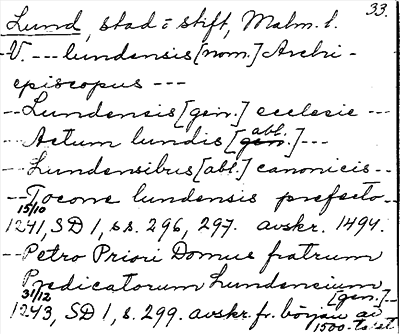 33.
Lund, stad o stift, Malm. l.
V. --- lundensis [nom.] Archi-
episcopus ---
--Lundensis [gen.] ecclesie ---
-- Actum lundis [gen. abl.] ---
-- Lundensibus [abl.] canonicis --
-- Tocone lundensis prefecto--
15/10
1241, SD 1, ss. 296, 297. avskr. 1494.
-- Petro Priori Domus fratrum
Predicatorum Lundensium [gen.]--
31/12
1243, SD 1, s. 299. avskr. fr. början av
1500-talet.